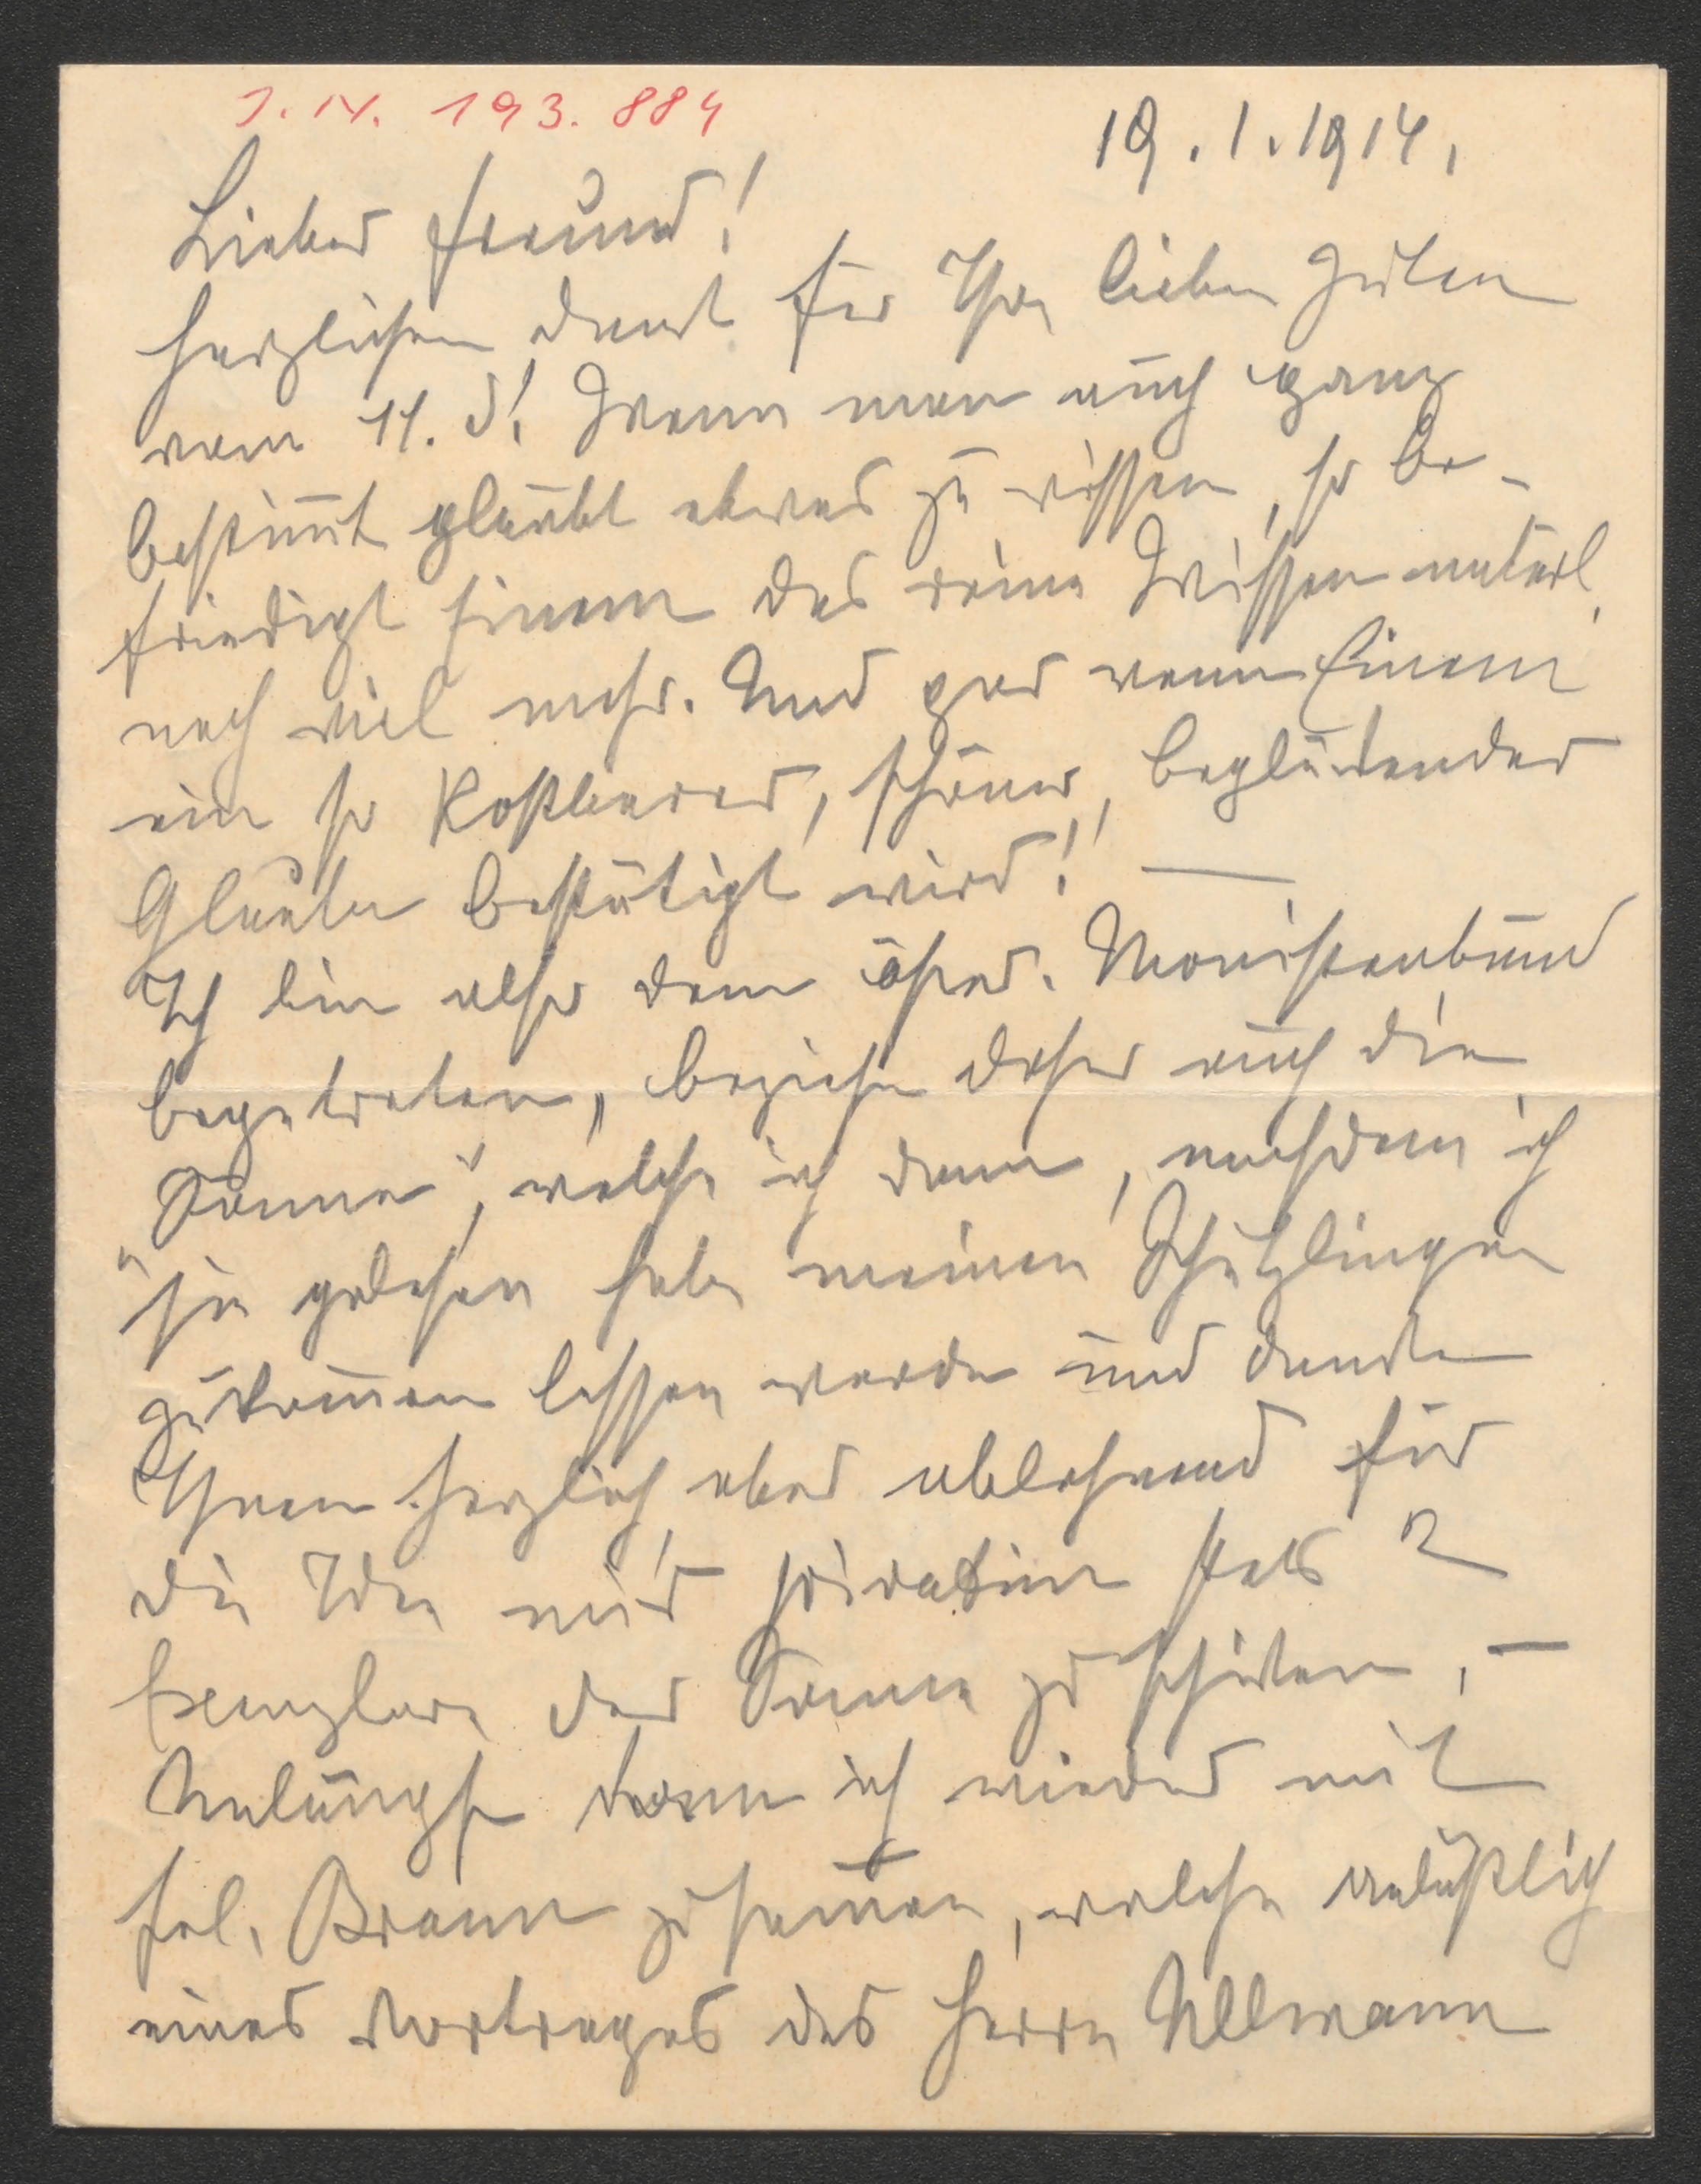 J. N. 193.884
19.1.1914.
Lieber Freund!
Herzlichen Dank für Ihren lieben Guten
vom 11. d! Wenn man auch ganz
bestim̄t glaubt etwas zu wissen, so be-
friedigt Einem das reine Wissen natürl.
noch viel mehr. Und gar wenn Einem
ein so kostbarer, schöner, beglückender
Glaube bestätigt wird! —
Ich bin also dem österr. Monistenbund
beigetreten, beziehe daher auch die
"Sonne", welche ich dann, nachdem ich
sie gelesen habe meinen Schützlingen
zukom̄en lassen werde und danke
Ihnen herzlich, aber ablehnend für
die Idee mir privatim stets 2
Exemplare der Sonne zu schicken. —
Unlängst kam ich wieder mit
Frl. Braun zusam̄en, welche anläßlich
eines Vortrages des Herrn Ullmann